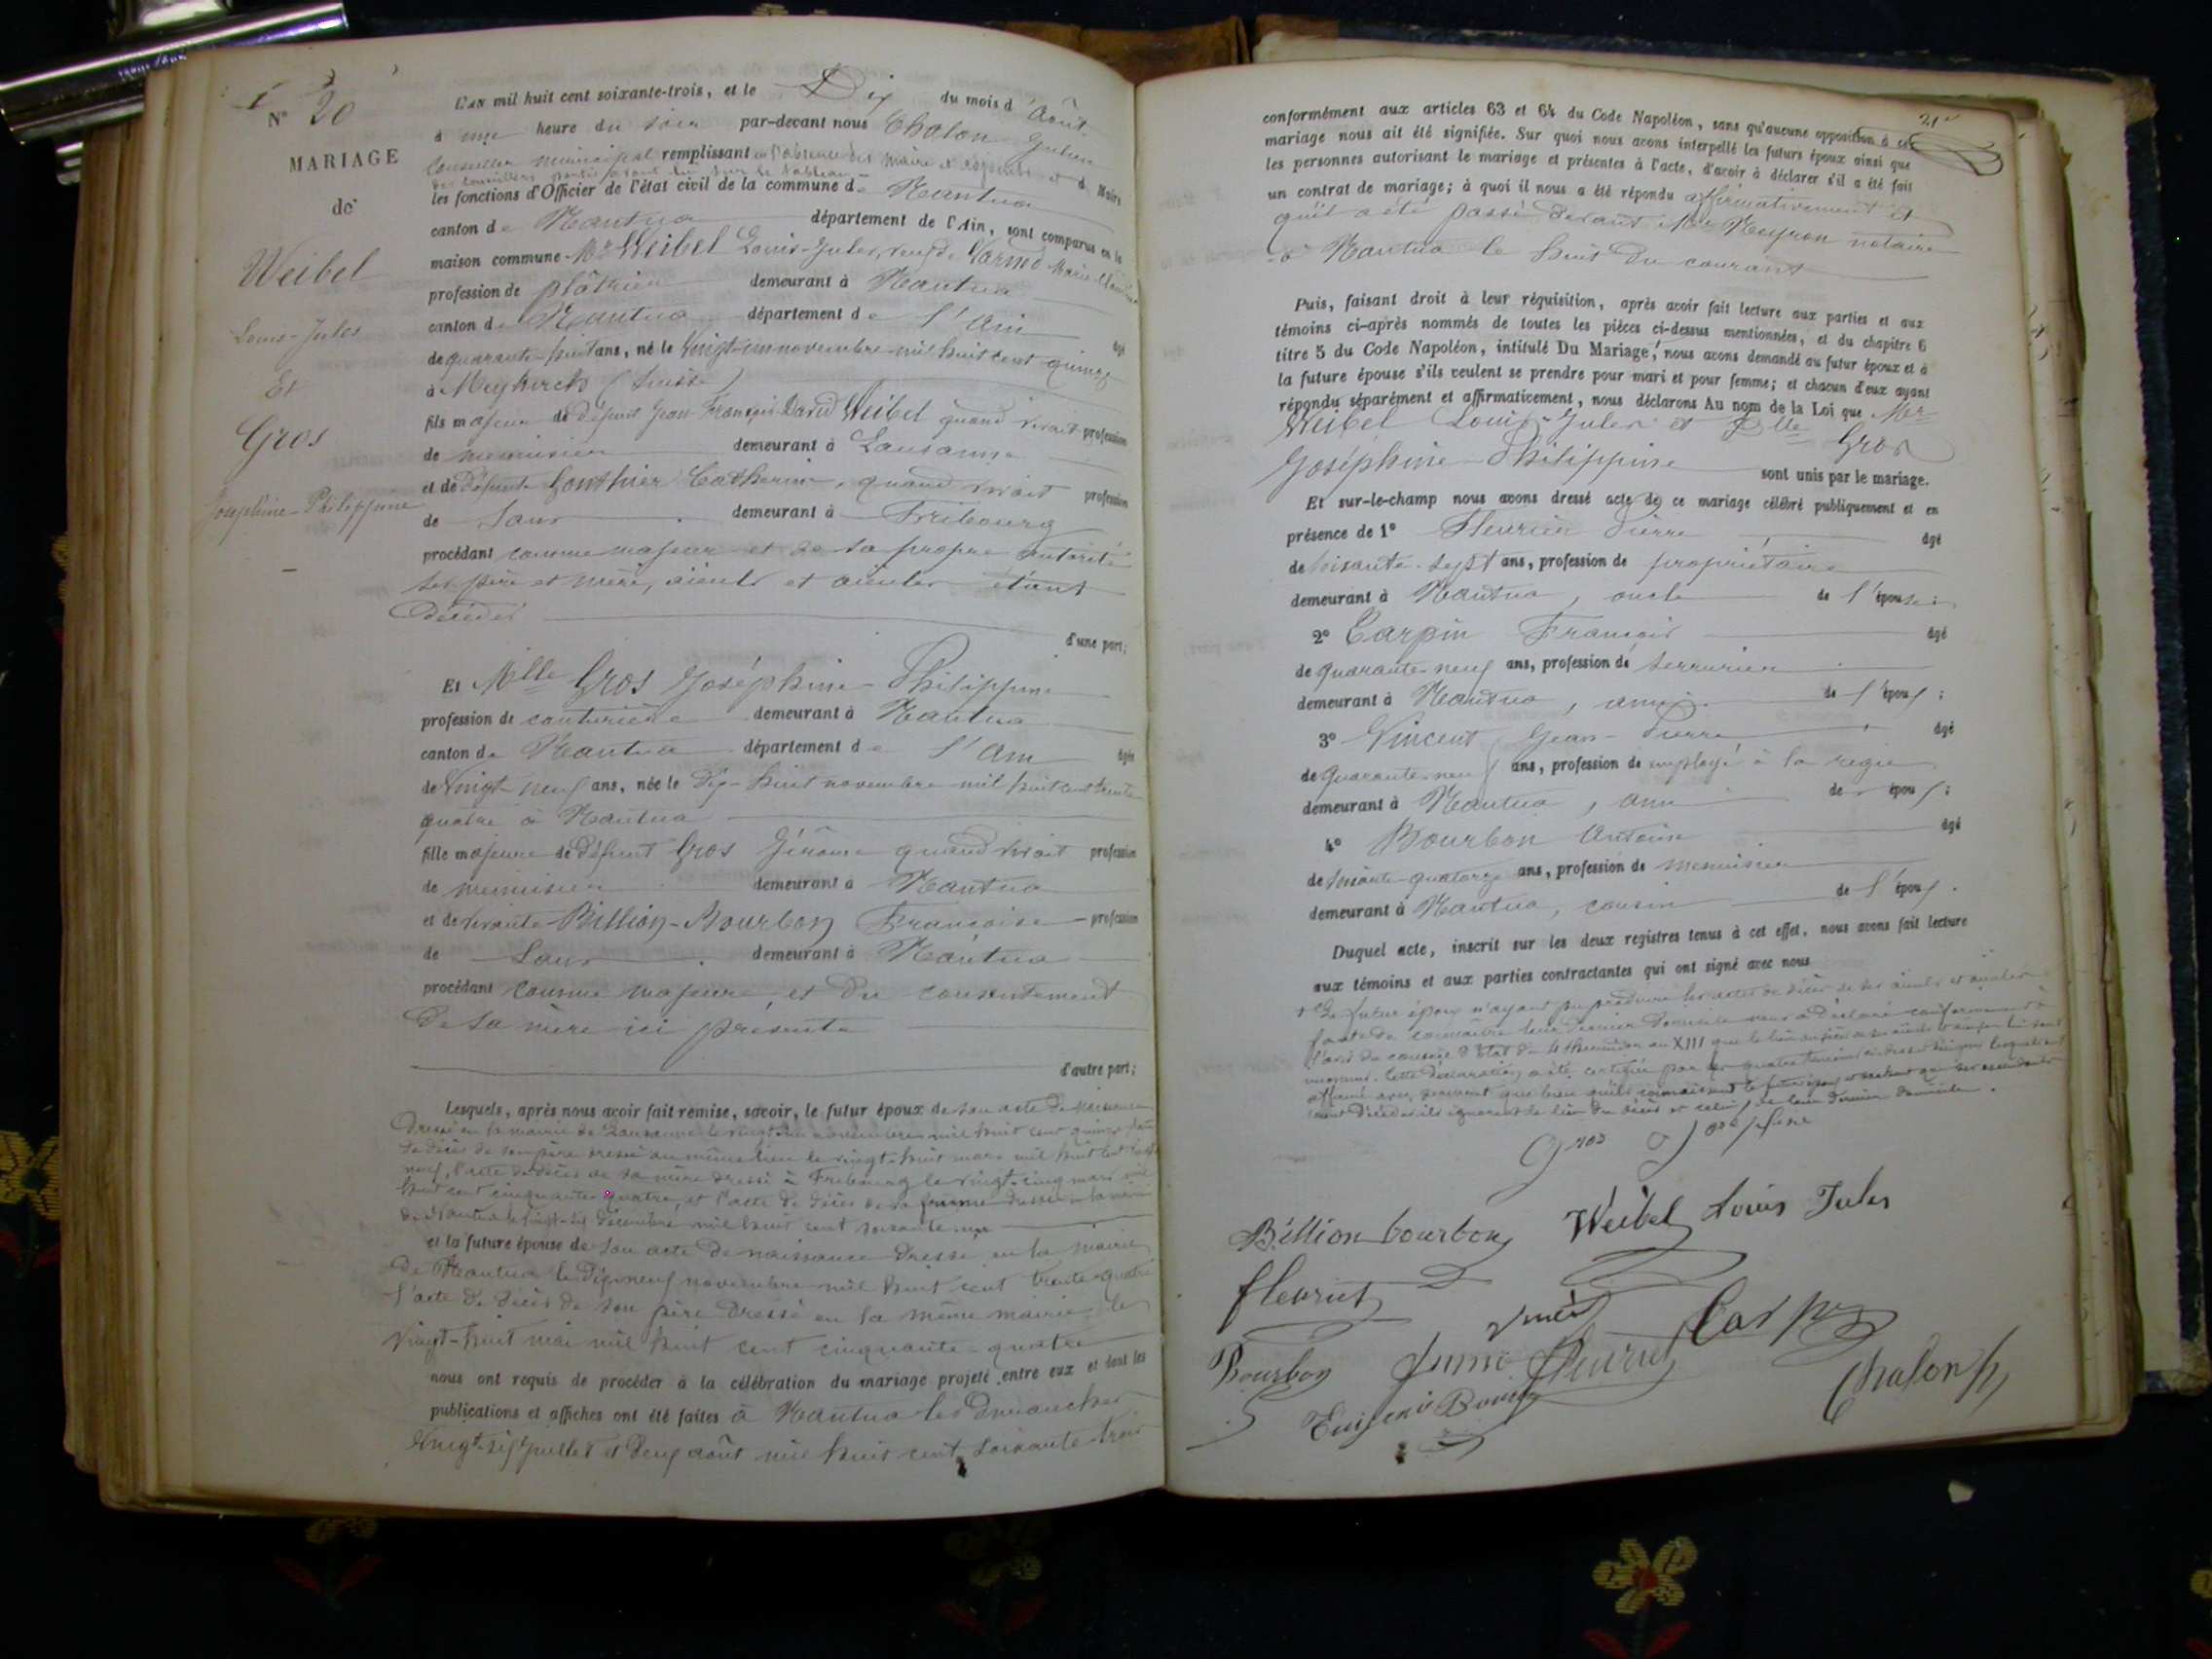 N° 20
MARIAGE
de
Weibel
Louis-Jules
Et
Gros
Joséphine-Philippine
L'AN mil huit cent soixante-trois, et le Dix du mois d'Août
à une heure du soir par-devant nous Chalon Julien
Conseiller municipal remplissant en l'absence des maire et adjoints et d Maire
des conseillers portés avant lui sur le tableau
les fonctions d'Officier de l'état civil de la commune de Nantua
canton de Nantua département de l'Ain, sont comparus en la
maison commune Mr Weibel Louis-Jules, veuf de Marie
profession de plâtrier demeurant à Nantua
canton de Nantua département de l'Ain âgé
de quarante-huit ans, né le vingt-un novembre mil huit cent quinze
à (Suisse)
fils majeur de défunt Jean-François-David Weibel quand vivait profession
de menuisier demeurant à Lausanne
et de défunte Gonthier Catherine, quand vivait profession
de Sans demeurant à Fribourg
procédant comme majeur et de sa propre autorité
ses père et mère, aïeuls et aïeules étant
décédés
d'une part;
Et Mlle Gros Joséphine-Philippine
profession de couturière demeurant à Nantua
canton de Nantua département de l'Ain âgée
de vingt-neuf ans, née le dix-huit novembre mil huit cent trente
quatre à Nantua
fille majeure de défunt Gros Jérôme quand vivait profession
de menuisier demeurant à Nantua
et de vivante Billion-Bourbon Françoise profession
de Sans demeurant à Nantua
procédant comme majeure, et du consentement
de sa mère ici présente
d'autre part;
Lesquels, après nous avoir fait remise, savoir, le futur époux de son acte de naissance
dressé en la mairie de Lausanne le vingt-un novembre mil huit cent quinze,
de décès de son père dressé au même lieu le vingt-huit mars mil huit cent
neuf, l'acte de décès de sa mère dressé à Fribourg le vingt-cinq mars mil
huit cent cinquante-quatre, et l'acte de décès de sa femme dressé en la mairie
de Nantua le décembre mil huit cent soixante-un
et la future épouse de son acte de naissance dressé en la mairie
de Nantua le dix-neuf novembre mil huit cent trente-quatre
l'acte de décès de son père dressé en la même mairie le
vingt-huit mai mil huit cent cinquante-quatre
nous ont requis de procéder à la célébration du mariage projeté entre eux et dont les
publications et affiches ont été faites à Nantua les dimanches
vingt-six juillet et deux août mil huit cent soixante-trois
21
conformément aux articles 63 et 64 du Code Napoléon, sans qu'aucune opposition à ce
mariage nous ait été signifiée. Sur quoi nous avons interpellé les futurs époux ainsi que
les personnes autorisant le mariage et présentes à l'acte, d'avoir à déclarer s'il a été fait
un contrat de mariage; à quoi il nous a été répondu affirmativement et
qu'il a été passé devant Me Meyron notaire
à Nantua le huit du courant
Puis, faisant droit à leur réquisition, après avoir fait lecture aux parties et aux
témoins ci-après nommés de toutes les pièces ci-dessus mentionnées, et du chapitre 6
titre 5 du Code Napoléon, intitulé Du Mariage, nous avons demandé au futur époux et à
la future épouse s'ils veulent se prendre pour mari et pour femme; et chacun d'eux ayant
répondu séparément et affirmativement, nous déclarons Au nom de la Loi que Mr
Weibel Louis-Jules et Dlle Gros
Joséphine-Philippine sont unis par le mariage.
Et sur-le-champ nous avons dressé acte de ce mariage célébré publiquement et en
présence de 1° Pierre âgé
de soixante-sept ans, profession de propriétaire
demeurant à Nantua, oncle de l'épouse;
2° Carpin François âgé
de quarante-neuf ans, profession de serrurier
demeurant à Nantua, ami de l'époux;
3° Vincent Jean-Pierre âgé
de quarante-neuf ans, profession de employé à la régie
demeurant à Nantua, ami de époux;
4° Bourbon Antoine âgé
de soixante-quatorze ans, profession de menuisier
demeurant à Nantua, cousin de l'épou .
Duquel acte, inscrit sur les deux registres tenus à cet effet, nous avons fait lecture
aux témoins et aux parties contractantes qui ont signé avec nous
Le futur époux n'ayant pu produire les actes de décès de ses aïeuls et aïeules
faute de connaître leur dernier domicile nous a déclaré conformément à
l'avis du conseil d'état du 4 thermidor an XIII que le lieu du décès de ses aïeuls
inconnus. Cette déclaration a été certifiée par les quatre témoins ci-dessus lesquels ont
affirmé avec serment que bien qu'ils connaissent le futur époux et sachant que ses ascendants
soient décédés ils ignorent le lieu du décès et celui de leur dernier domicile.
Gros Joséphine
Billion bourbon Weibel Louis Jules
fleuriet
Carpin
Bourbon
Chalon